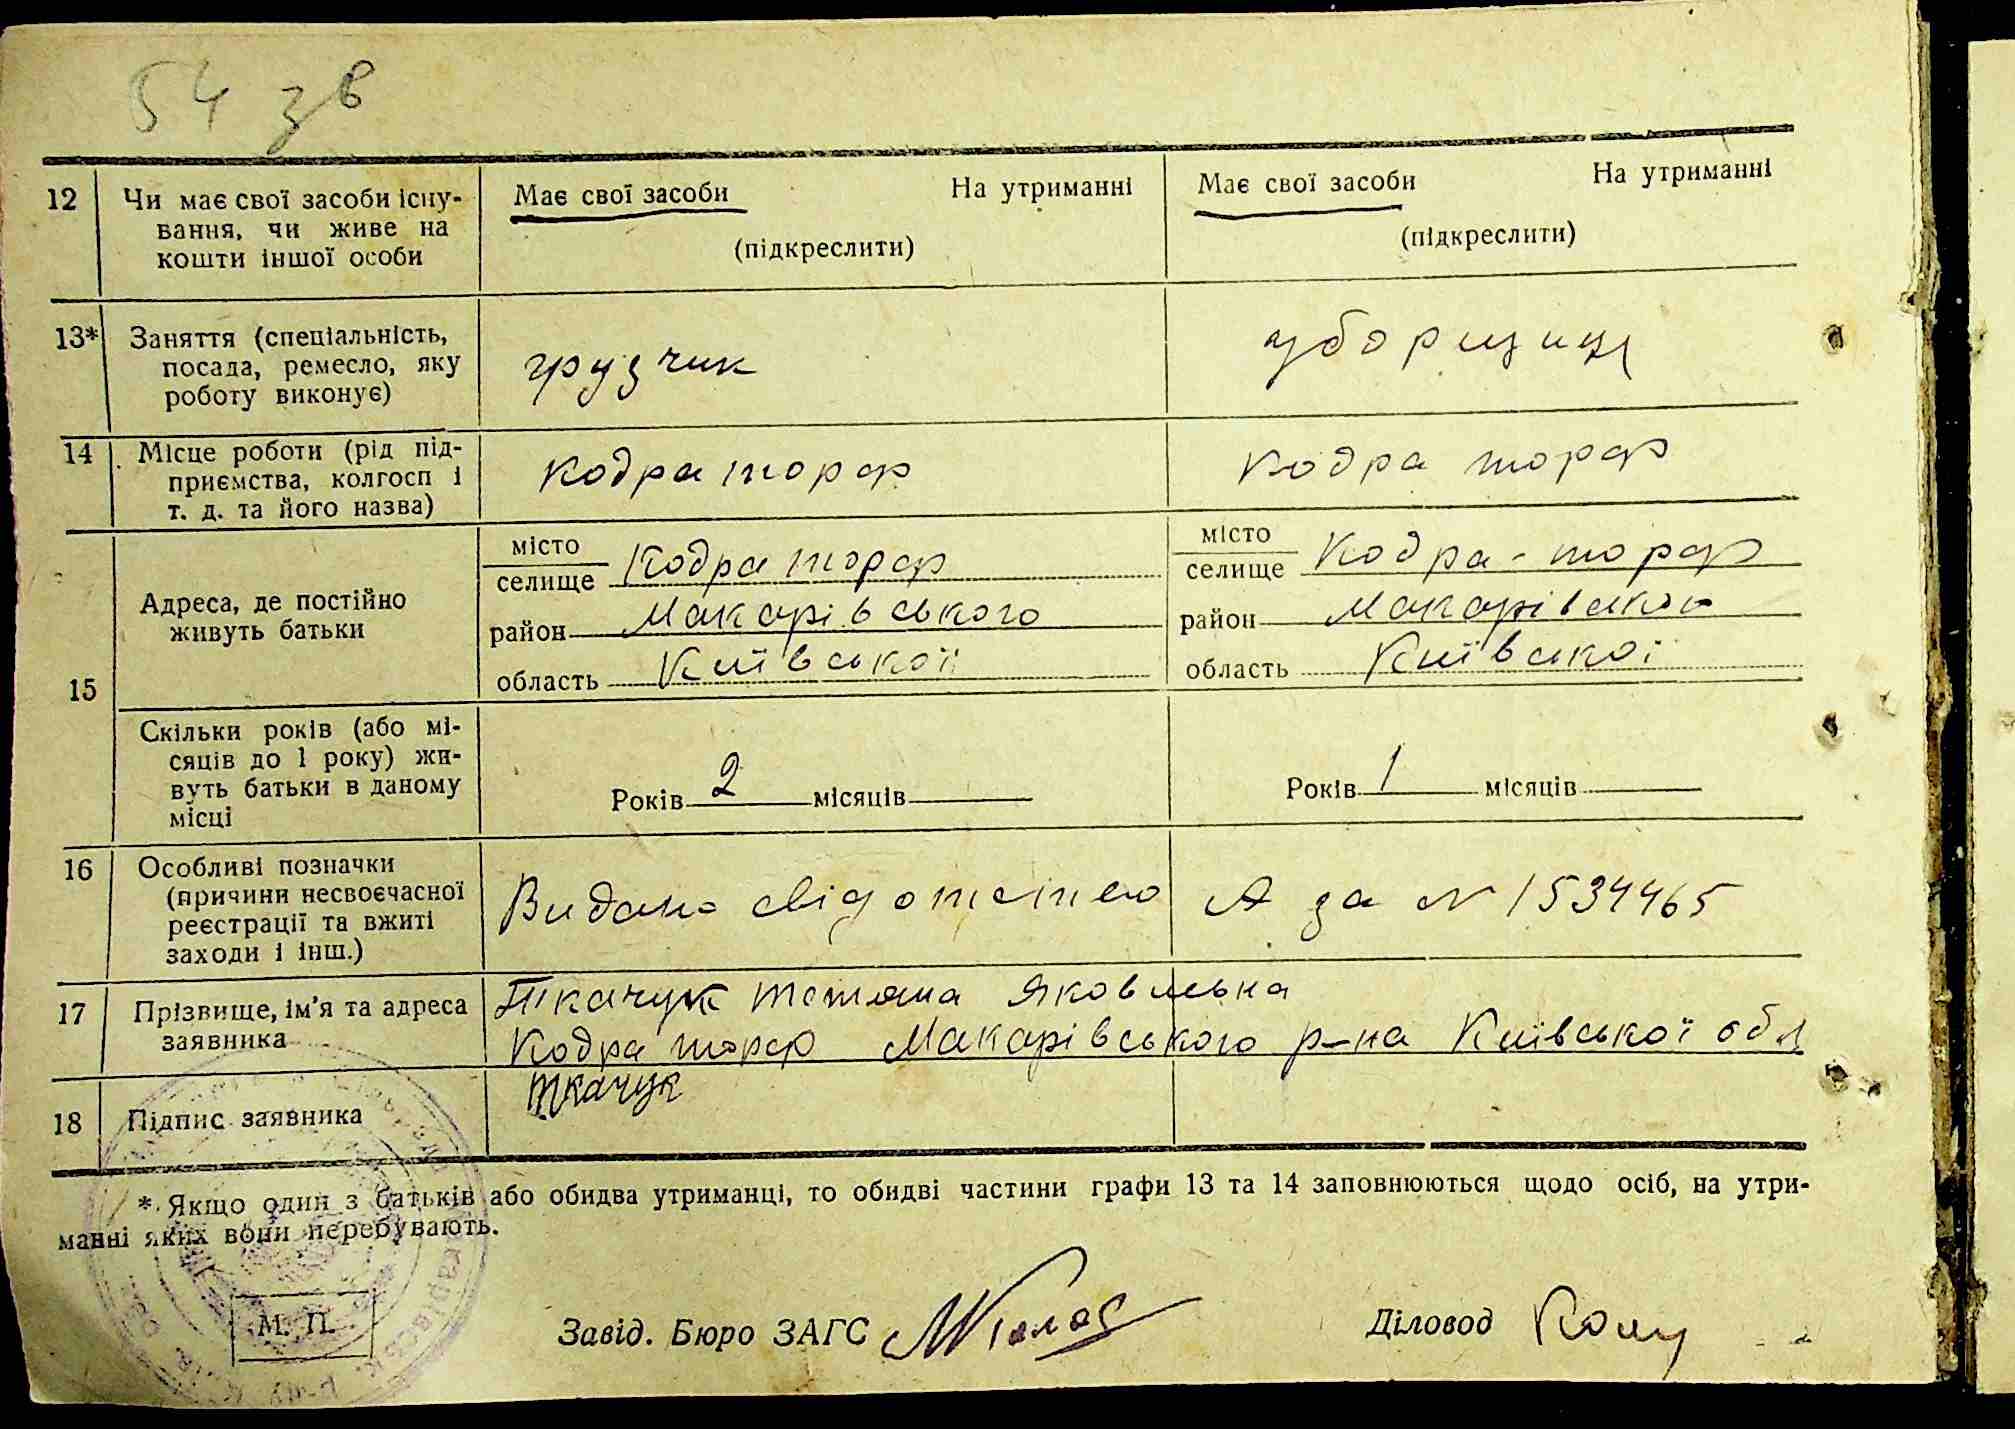 54 зв
12 Чи має свої засоби існу-
вання, чи живе на
кошти іншої особи
Має свої засоби На утриманні
(підкреслити)
Має свої засоби На утриманні
(підкреслити)
13* Заняття (спеціальність,
посада, ремесло, яку
роботу виконує)
грузчик
уборщиця
14 Місце роботи (рід під-
приємства, колгосп і
т. д. та його назва)
Кодра торф
Кодра торф
15
Адреса, де постійно
живуть батьки
місто
селище Кодра торф
район Макарівського
область Київської
місто
селище Кодра-торф
район Макарівського
область Київської
Скільки років (або мі-
сяців до 1 року) жи-
вуть батьки в даному
місці
Років 2 місяців
Років 1 місяців
16 Особливі позначки
(причини несвоєчасної
реєстрації та вжиті
заходи і інш.)
Видано свідотство А за N 1534465
17 Прізвище, ім'я та адреса
заявника
Ткачук Тетяна Яковльвна
Кодра торф Макарівського р-на Київської обл
18 Підпис заявника
Ткачук
* Якщо один з батьків або обидва утриманці, то обидві частини графи 13 та 14 заповнюються щодо осіб, на утри-
манні яких вони перебувають.
М. П.
Завід. Бюро ЗАГС
Діловод